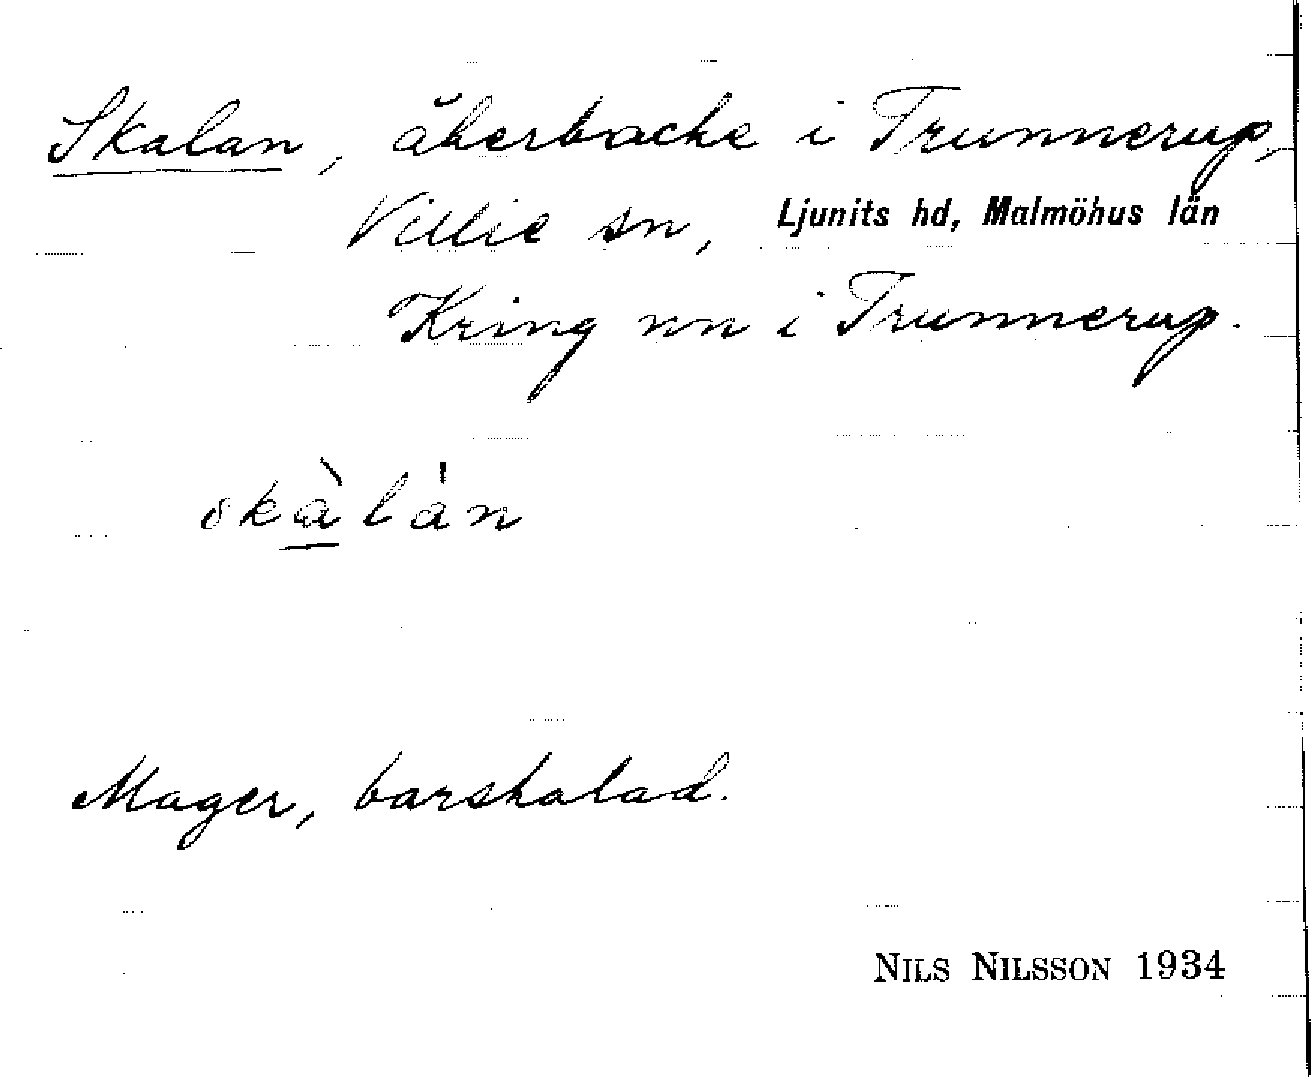 Skalan, åkerbacke i Trunnerup,
Villie sn, Ljunits hd, Malmöhus län
Kring nn i Trunnerup.
skàlán
Mager, barskalad.
NILS NILSSON 1934